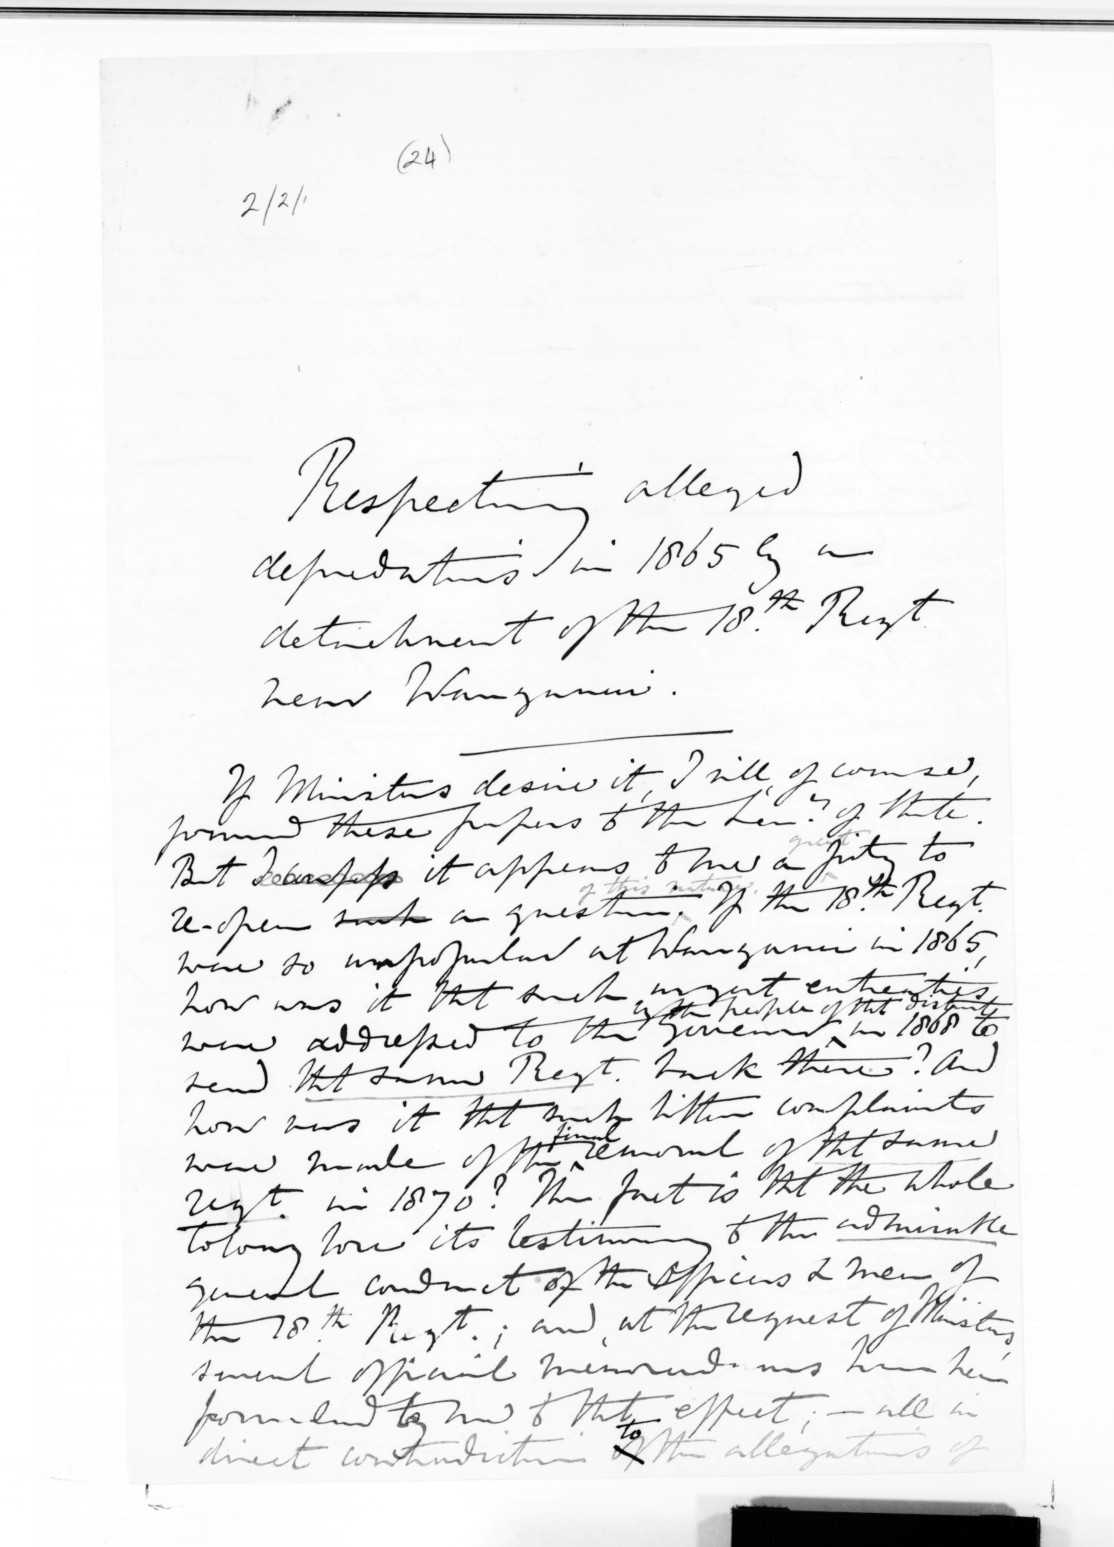 (24)
2/2/1
Respecting alleged
depredations in 1865 by a
detachment of the 18.th Regt.
near Wanganui.
If Ministers desire it, I will, of course,
forward these papers to the Secy. of State.
But it appears to me a great pity to
re-open such a question of this nature. If the 18.th Regt.
were so unpopular at Wanganui in 1865,
how was it that such urgent entreaties
were addressed to the Governor by the people of that district in 1868 to
send that same Regt. back there? And
how was it that such bitter complaints
were made of the final removal of that same
regt. in 1870? The fact is that the whole
Colony bore its testimony to the admirable
general conduct of the Officers & men of
the 18th Regt.; and, at the request of Ministers,
several official memorandums have been
forwarded by me to that effect; — all in
direct contradiction to the allegations of